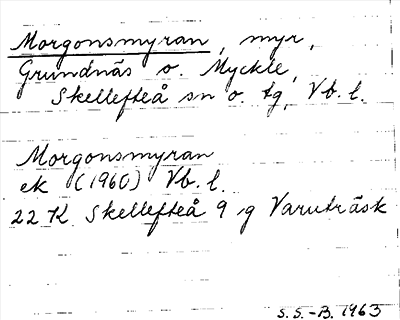 Morgonsmyran, myr,
Grundnäs o. Myckle,
Skellefteå sn o. tg, Vb. l.
Morgonsmyran
ek (1960) Vb. l.
22 K Skellefteå 9 g Varuträsk
S. S.-B. 1963